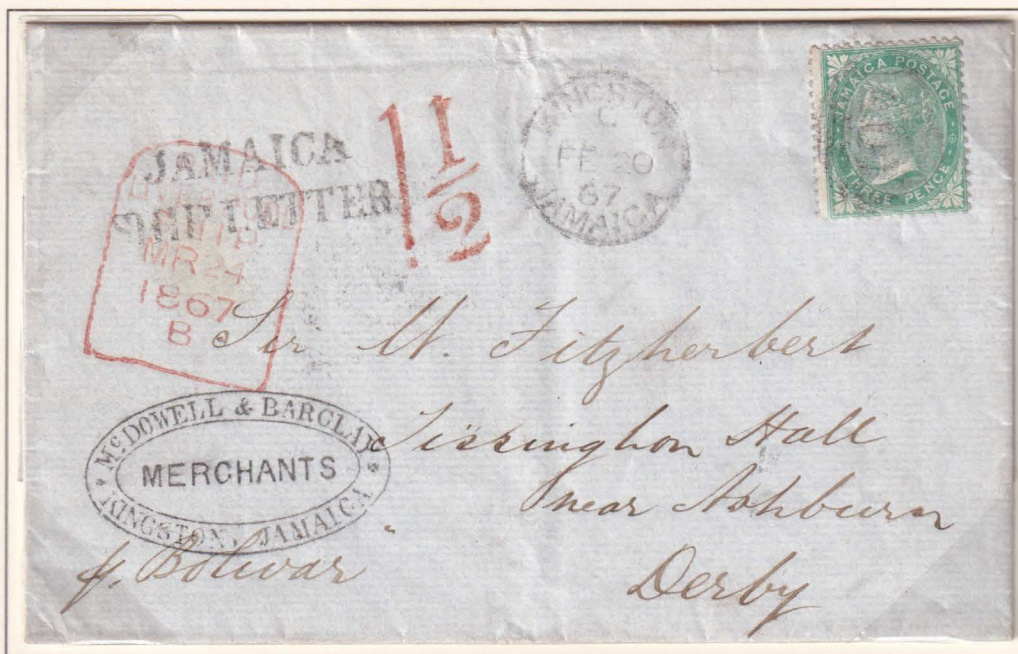 JAMAICA
LETTER
1 1/2
KINGSTON
C
FE 20
67
JAMAICA
JAMAICA POSTAGE
THREE PENCE
MR 24
1867
B
Sir W. Fitzherbert
Tissington Hall
near Ashburn
Derby
McDOWELL & BARCLAY
MERCHANTS
KINGSTON, JAMAICA
p. Bolivar